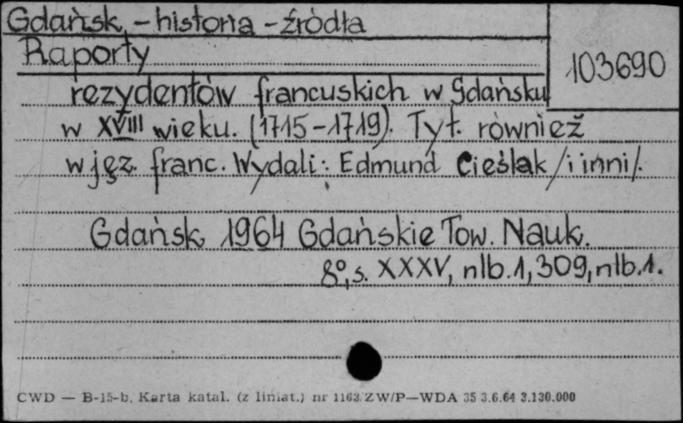 Gdańsk, - historia - źródła
Raporty
103690
rezydentów francuskich w Gdańsku
w XVIII wieku. (1715-1719). Tyt. również
w jęz. franc. Wydali: Edmund Cieślak /i inni/.
Gdańsk 1964 Gdańskie Tow. Nauk.
8°, s. XXXV, nlb.1, 309, nlb.1.
CWD — B-15-b, Karta katal. (z liniat.) nr 1163 ZW/P—WDA 35 3.6.64 3.130.000